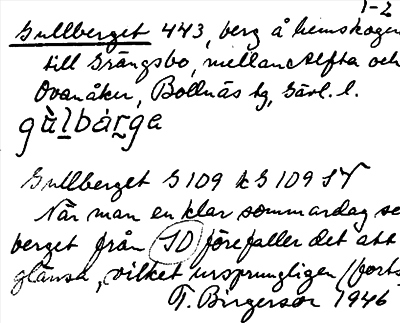 1-2
Gullberget 443, berg å hemskogen
till Grängsbo, mellan Alfta och
Ovanåker, Bollnäs tg, Gävl. l.
gàlbárga
Gullberget S 109 k S 109 SV
När man en klar sommardag se
berget från SO förefaller det att
glänsa, vilket ursprungligen /forts
T. Birgersson 1946